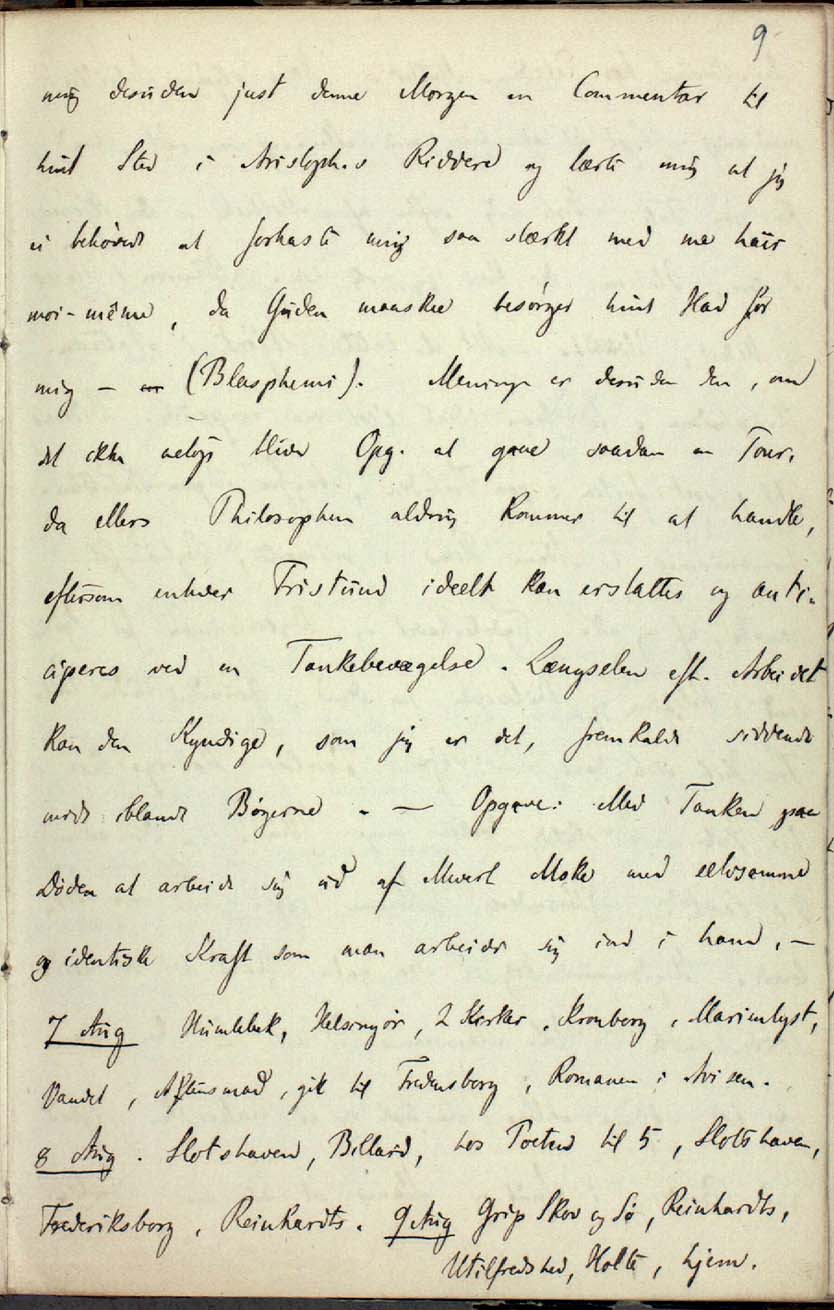 9
mig desuden just denne Morgen en Commentar til
hint Sted i Aristoph.s Riddere og lærte mig at jeg
ei behøvede at forhaste mig saa stærkt med me haïr
moi-même, da Guden maaskee besørger hint Had for
mig – (Blasphemi). Meningen er desuden den, om
det ikke netop bliver Opg. at gaae saadan en Tour.
da ellers Philosophen aldrig kommer til at handle,
eftersom enhver Fristund ideelt kan erstattes og anti-
ciperes ved en Tankebevægelse. Længselen eft. Arbeidet
kan den Kyndige, som jeg er det, fremkalde siddende
midt iblandt Bøgerne. — Opgave: Med Tanken paa
Døden at arbeide sig ud af Hvert med selvsamme
og identiske Kraft som man arbeider sig ind i ham. –
7 Aug Humlebek, Helsingør, 2 Kirker, Kronborg, Marienlyst,
Vandet, Aftensmad, gik til Fredensborg, Romanen i Avisen.
8 Aug. Slotshaven, Billard, hos til 5, Slotshaven,
Frederiksborg, Reinhardts. 9 Aug Grip Skov og Sø, Reinhardts,
Utilfredshed, Holte, hjem.